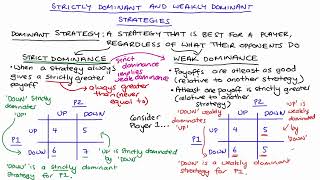 STRICTLY DOMINANT AND WEAKLY DOMINANT
STRATEGIES
DOMINANT STRATEGY: A STRATEGY THAT IS BEST FOR A PLAYER,
REGARDLESS OF WHAT THEIR OPPONENTS DO
STRICT DOMINANCE
• When a strategy always
gives a strictly greater
payoff
always greater than
(never
equal to)
Strict
dominance
implies
weak dominance
WEAK DOMINANCE
• Payoffs are atleast as good
(relative to another strategy)
• Atleast one payoff is strictly greater
(relative to another
strategy)
'DOWN' strictly
dominates
'UP'
P2
UP DOWN
P1
UP 4 5
DOWN 6 7
'UP' is strictly dominated
by 'DOWN'
'DOWN' is a strictly dominant
strategy for P1.
Consider
Player 1...
'DOWN' weakly
dominates
'UP'
P2
UP DOWN
P1
UP 4 5
DOWN 6 5
'UP'
is
weakly
dominated
by
'DOWN'
'DOWN' is a weakly dominant
strategy for P1.